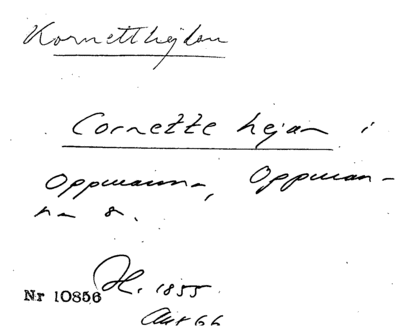 Kornetthejdan
Cornette hejan i
Oppmanna, Oppman-
na s.
Nr 10856 H. 1855